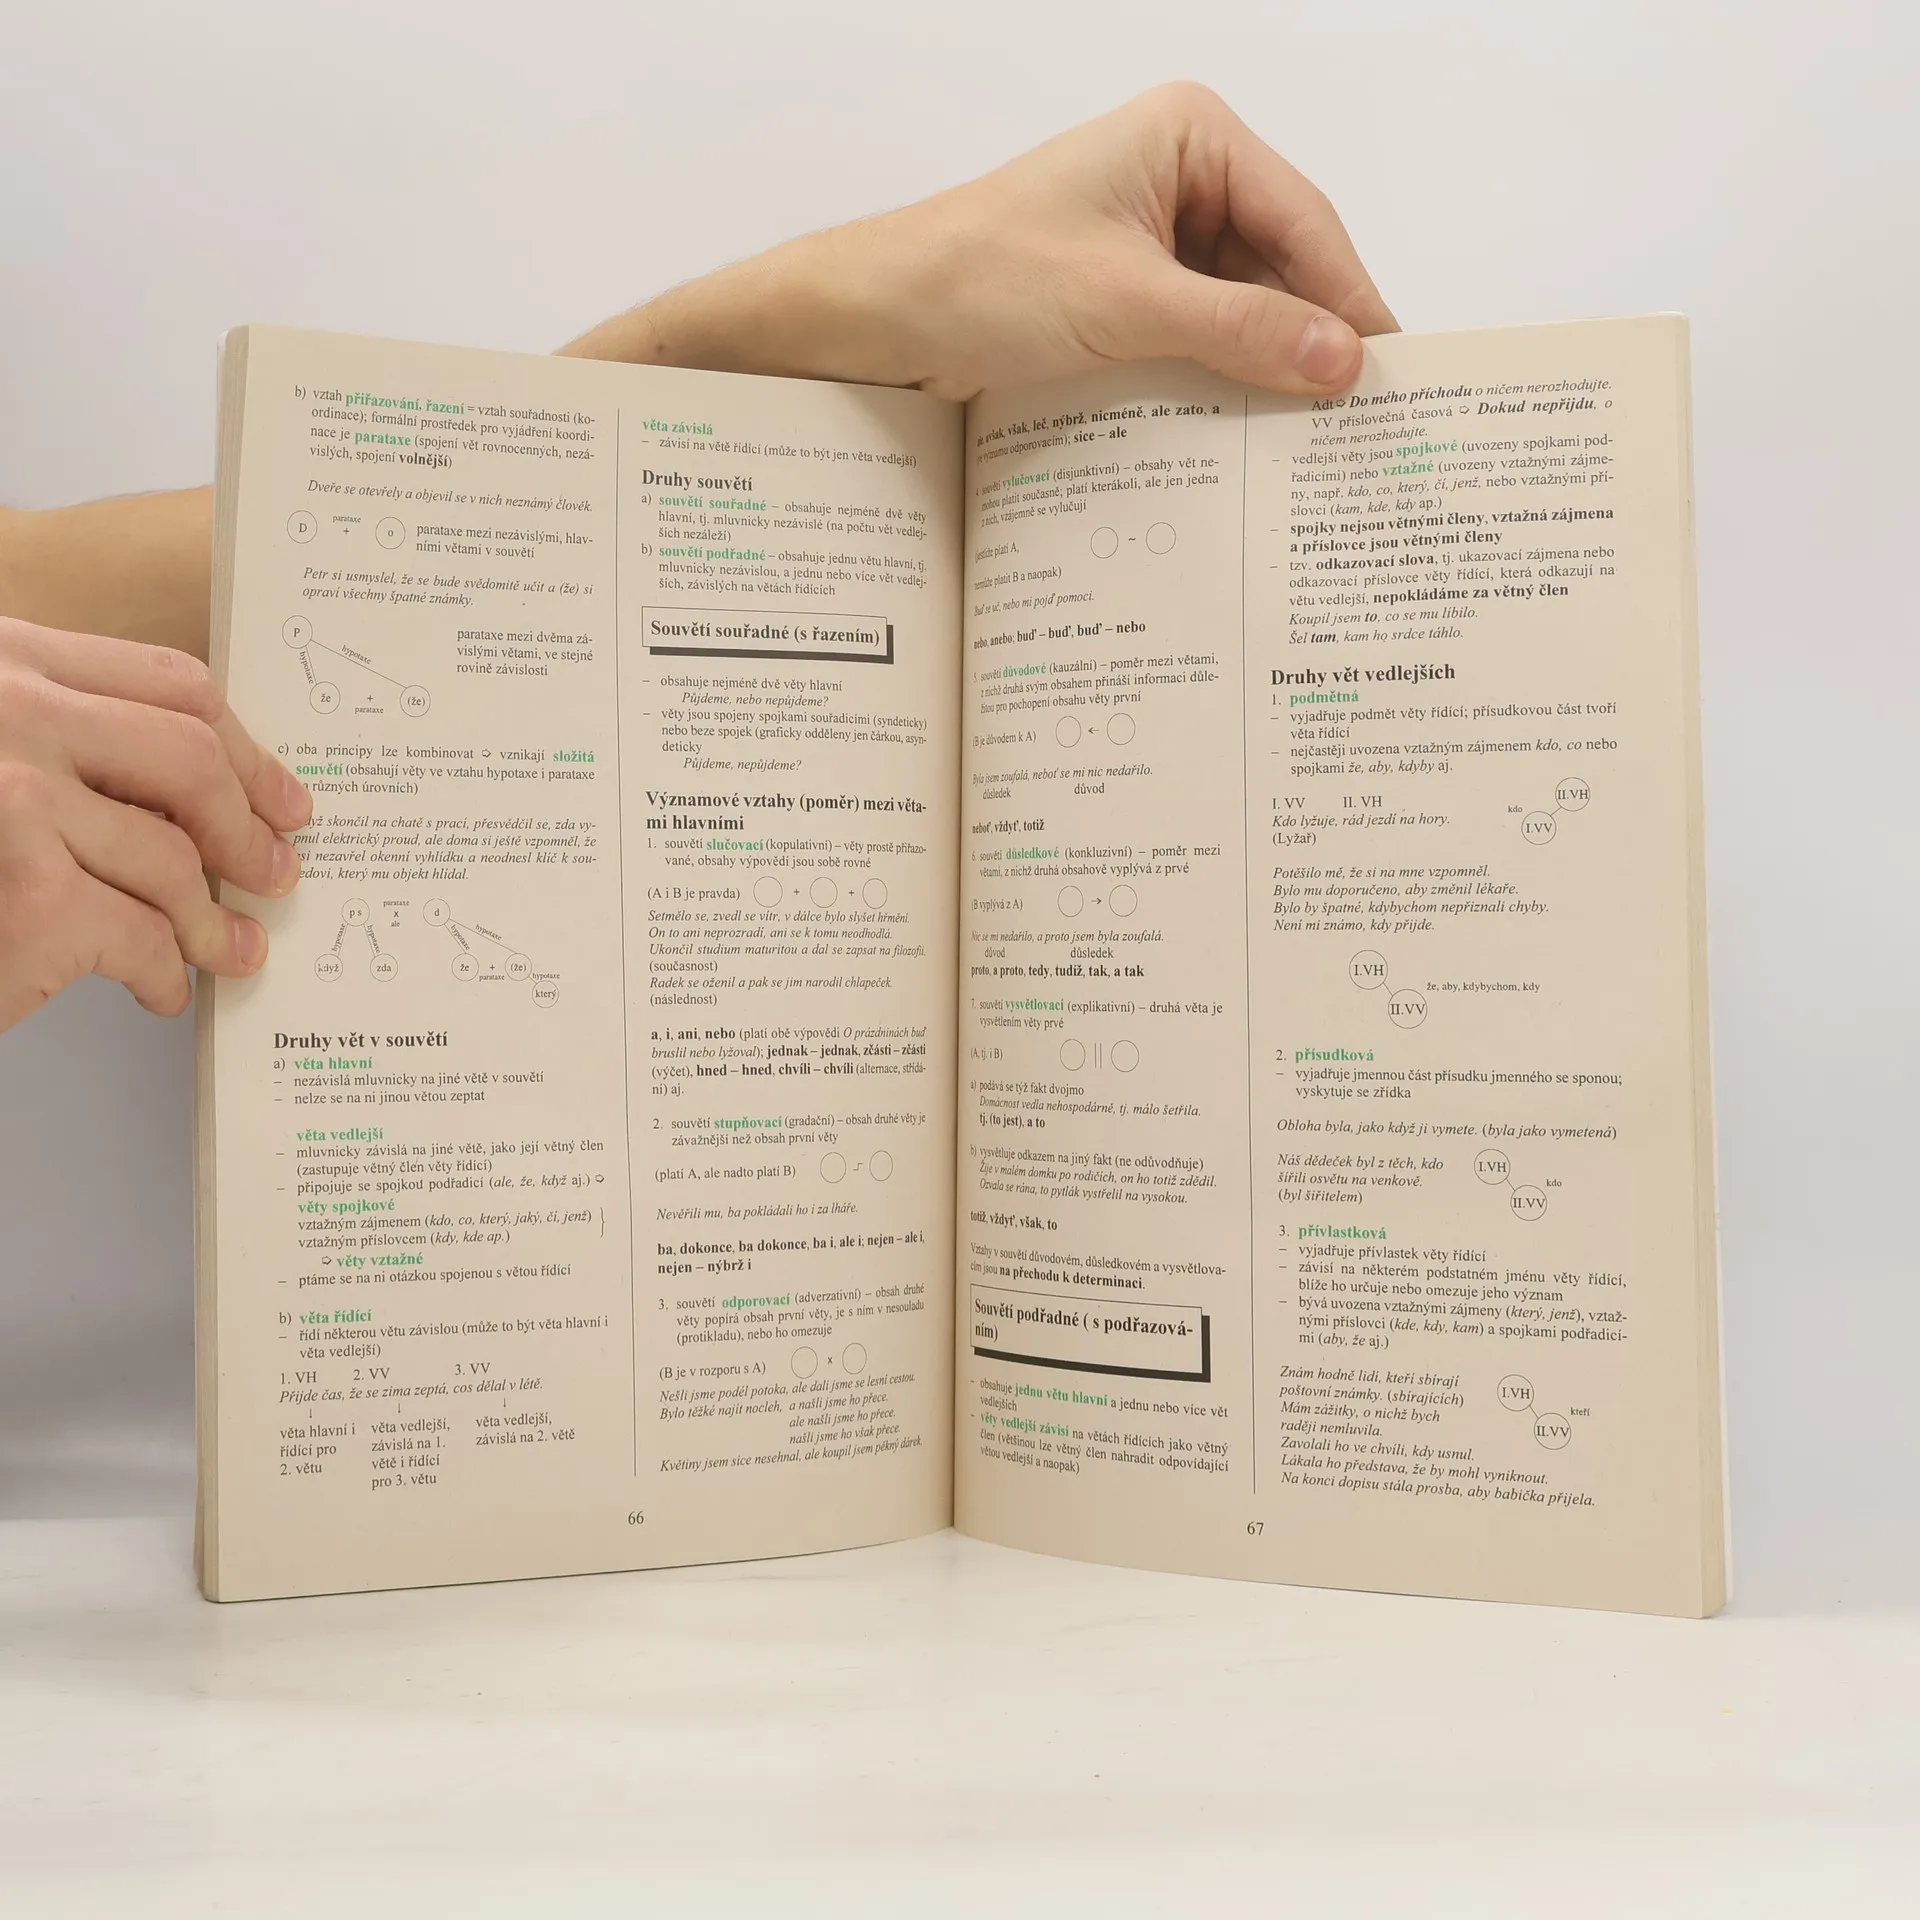 b) vztah přiřazování, řazení = vztah souřadnosti (ko-
ordinace); formální prostředek pro vyjádření koordi-
nace je parataxe (spojení vět rovnocenných, nezá-
vislých, spojení volnější)
Dveře se otevřely a objevil se v nich neznámý člověk.
D parataxe + o
parataxe mezi nezávislými, hlav-
ními větami v souvětí
Petr si usmyslel, že se bude svědomitě učit a (že) si
opraví všechny špatné známky.
P
hypotaxe hypotaxe
že + parataxe (že)
parataxe mezi dvěma zá-
vislými větami, ve stejné
rovině závislosti
c) oba principy lze kombinovat ➪ vznikají složitá
souvětí (obsahují věty ve vztahu hypotaxe i parataxe
různých úrovních)
skončil na chatě s prací, přesvědčil se, zda vy-
pnul elektrický proud, ale doma si ještě vzpomněl, že
nezavřel okenní vyhlídku a neodnesl klíč k sou-
který mu objekt hlídal.
p s parataxe x ale d
hypotaxe hypotaxe hypotaxe hypotaxe
když zda že + parataxe (že) hypotaxe
který
Druhy vět v souvětí
a) věta hlavní
– nezávislá mluvnicky na jiné větě v souvětí
– nelze se na ni jinou větou zeptat
věta vedlejší
– mluvnicky závislá na jiné větě, jako její větný člen
(zastupuje větný člen věty řídící)
– připojuje se spojkou podřadicí (ale, že, když aj.) ➪
věty spojkové
vztažným zájmenem (kdo, co, který, jaký, čí, jenž)
vztažným příslovcem (kdy, kde ap.)
➪ věty vztažné
– ptáme se na ni otázkou spojenou s větou řídící
b) věta řídící
– řídí některou větu závislou (může to být věta hlavní i
věta vedlejší)
1. VH 2. VV 3. VV
Přijde čas, že se zima zeptá, cos dělal v létě.
↓ ↓ ↓
věta hlavní i věta vedlejší, věta vedlejší,
řídící pro závislá na 1. závislá na 2. větě
2. větu větě i řídící
pro 3. větu
věta závislá
– závisí na větě řídící (může to být jen věta vedlejší)
Druhy souvětí
a) souvětí souřadné – obsahuje nejméně dvě věty
hlavní, tj. mluvnicky nezávislé (na počtu vět vedlej-
ších nezáleží)
b) souvětí podřadné – obsahuje jednu větu hlavní, tj.
mluvnicky nezávislou, a jednu nebo více vět vedlej-
ších, závislých na větách řídících
Souvětí souřadné (s řazením)
– obsahuje nejméně dvě věty hlavní
Půjdeme, nebo nepůjdeme?
– věty jsou spojeny spojkami souřadicími (syndeticky)
nebo beze spojek (graficky odděleny jen čárkou, asyn-
deticky
Půjdeme, nepůjdeme?
Významové vztahy (poměr) mezi věta-
mi hlavními
1. souvětí slučovací (kopulativní) – věty prostě přiřazo-
vané, obsahy výpovědí jsou sobě rovné
(A i B je pravda) + +
Setmělo se, zvedl se vítr, v dálce bylo slyšet hřmění.
On to ani neprozradí, ani se k tomu neodhodlá.
Ukončil studium maturitou a dal se zapsat na filozofii.
(současnost)
Radek se oženil a pak se jim narodil chlapeček.
(následnost)
a, i, ani, nebo (platí obě výpovědi O prázdninách buď
bruslil nebo lyžoval); jednak – jednak, zčásti – zčásti
(výčet), hned – hned, chvíli – chvíli (alternace, střídá-
ní) aj.
2. souvětí stupňovací (gradační) – obsah druhé věty je
závažnější než obsah první věty
(platí A, ale nadto platí B)
Nevěřili mu, ba pokládali ho i za lháře.
ba, dokonce, ba dokonce, ba i, ale i; nejen – ale i,
nejen – nýbrž i
3. souvětí odporovací (adverzativní) – obsah druhé
věty popírá obsah první věty, je s ním v nesouladu
(protikladu), nebo ho omezuje
(B je v rozporu s A) x
Nešli jsme podél potoka, ale dali jsme se lesní cestou.
Bylo těžké najít nocleh, a našli jsme ho přece.
ale našli jsme ho přece.
našli jsme ho však přece.
Květiny jsem sice nesehnal, ale koupil jsem pěkný dárek.
66
avšak, však, leč, nýbrž, nicméně, ale zato, a
(ve významu odporovacím); sice – ale
4. souvětí vylučovací (disjunktivní) – obsahy vět ne-
mohou platit současně; platí kterákoli, ale jen jedna
z nich, vzájemně se vylučují
(jestliže platí A, ~
nemůže platit B a naopak)
Buď se uč, nebo mi pojď pomoci.
nebo, anebo; buď – buď, buď – nebo
5. souvětí důvodové (kauzální) – poměr mezi větami,
z nichž druhá svým obsahem přináší informaci důle-
žitou pro pochopení obsahu věty první
(B je důvodem k A) ←
Byla jsem zoufalá, neboť se mi nic nedařilo.
důsledek důvod
neboť, vždyť, totiž
6. souvětí důsledkové (konkluzivní) – poměr mezi
větami, z nichž druhá obsahově vyplývá z prvé
(B vyplývá z A) →
Nic se mi nedařilo, a proto jsem byla zoufalá.
důvod důsledek
proto, a proto, tedy, tudíž, tak, a tak
7. souvětí vysvětlovací (explikativní) – druhá věta je
vysvětlením věty prvé
(A, tj. i B) ||
a) podává se týž fakt dvojmo
Domácnost vedla nehospodárně, tj. málo šetřila.
tj. (to jest), a to
b) vysvětluje odkazem na jiný fakt (ne odůvodňuje)
Žije v malém domku po rodičích, on ho totiž zdědil.
Ozvala se rána, to pytlák vystřelil na vysokou.
totiž, vždyť, však, to
Vztahy v souvětí důvodovém, důsledkovém a vysvětlova-
cím jsou na přechodu k determinaci.
Souvětí podřadné ( s podřazová-
ním)
– obsahuje jednu větu hlavní a jednu nebo více vět
vedlejších
– věty vedlejší závisí na větách řídících jako větný
člen (většinou lze větný člen nahradit odpovídající
větou vedlejší a naopak)
Adt ➪ Do mého příchodu o ničem nerozhodujte.
VV příslovečná časová ➪ Dokud nepřijdu, o
ničem nerozhodujte.
– vedlejší věty jsou spojkové (uvozeny spojkami pod-
řadicími) nebo vztažné (uvozeny vztažnými zájme-
ny, např. kdo, co, který, čí, jenž, nebo vztažnými pří-
slovci (kam, kde, kdy ap.)
– spojky nejsou větnými členy, vztažná zájmena
a příslovce jsou větnými členy
– tzv. odkazovací slova, tj. ukazovací zájmena nebo
odkazovací příslovce věty řídící, která odkazují na
větu vedlejší, nepokládáme za větný člen
Koupil jsem to, co se mu líbilo.
Šel tam, kam ho srdce táhlo.
Druhy vět vedlejších
1. podmětná
– vyjadřuje podmět věty řídící; přísudkovou část tvoří
věta řídící
– nejčastěji uvozena vztažným zájmenem kdo, co nebo
spojkami že, aby, kdyby aj.
I. VV II. VH
Kdo lyžuje, rád jezdí na hory.
(Lyžař)
kdo II.VH
I.VV
Potěšilo mě, že si na mne vzpomněl.
Bylo mu doporučeno, aby změnil lékaře.
Bylo by špatné, kdybychom nepřiznali chyby.
Není mi známo, kdy přijde.
I.VH
že, aby, kdybychom, kdy
II.VV
2. přísudková
– vyjadřuje jmennou část přísudku jmenného se sponou;
vyskytuje se zřídka
Obloha byla, jako když ji vymete. (byla jako vymetená)
Náš dědeček byl z těch, kdo
šířili osvětu na venkově.
(byl šiřitelem)
I.VH
kdo
II.VV
3. přívlastková
– vyjadřuje přívlastek věty řídící
– závisí na některém podstatném jménu věty řídící,
blíže ho určuje nebo omezuje jeho význam
– bývá uvozena vztažnými zájmeny (který, jenž), vztaž-
nými příslovci (kde, kdy, kam) a spojkami podřadicí-
mi (aby, že aj.)
Znám hodně lidí, kteří sbírají
poštovní známky. (sbírajících)
Mám zážitky, o nichž bych
raději nemluvila.
Zavolali ho ve chvíli, kdy usnul.
Lákala ho představa, že by mohl vyniknout.
Na konci dopisu stála prosba, aby babička přijela.
I.VH
kteří
II.VV
67